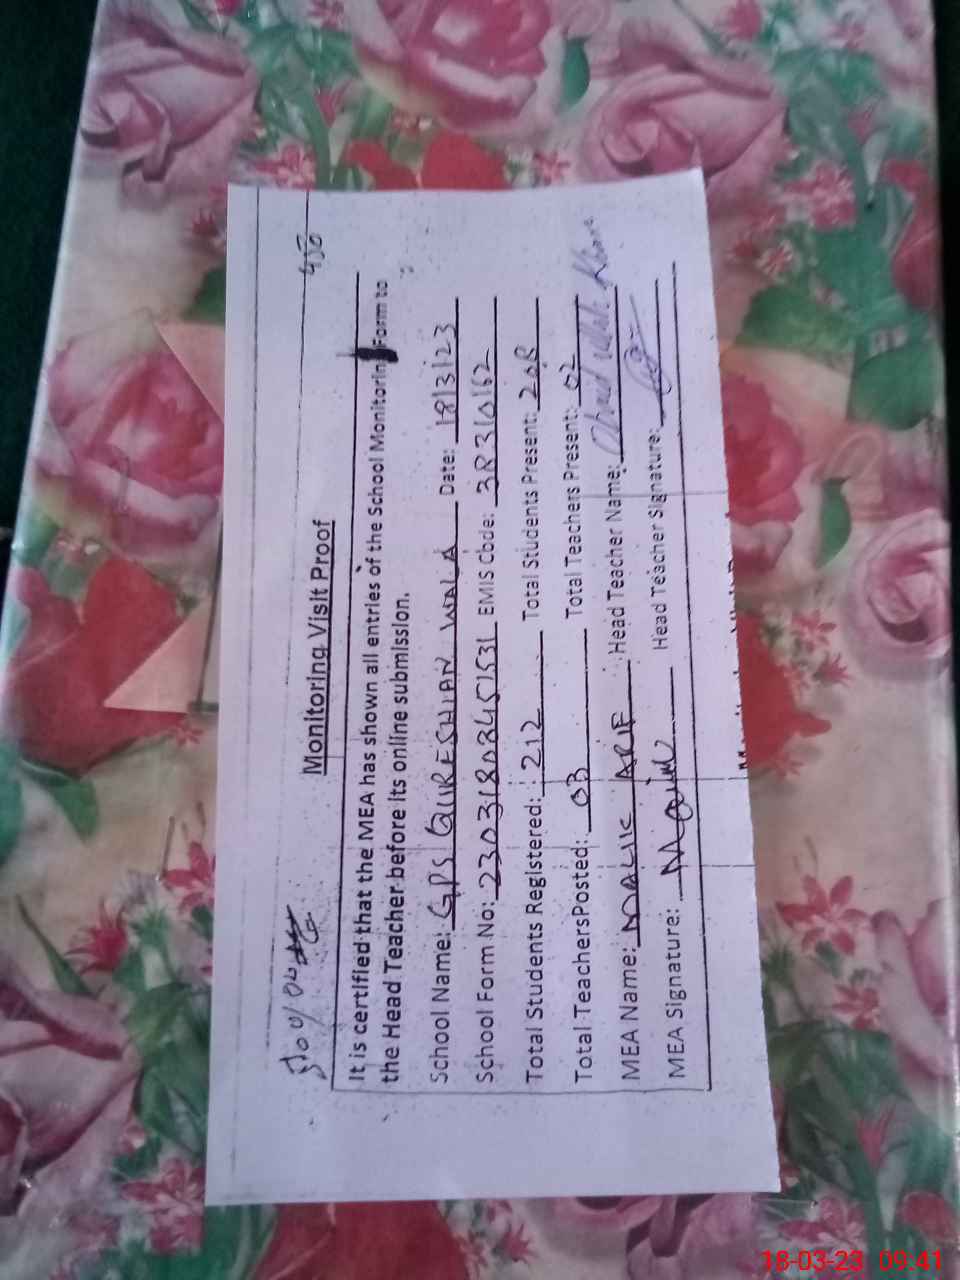 450
Monitoring Visit Proof
It is certified that the MEA has shown all entries of the School Monitoring Form to
the Head Teacher before its online submission.
School Name: GPS QURESHIAN WALA Date: 18/3/23
School Form No: EMIS Code:
Total Students Registered: 212 Total Students Present: 208
Total Teachers Posted: 03 Total Teachers Present: 02
MEA Name: MALIK ARIF Head Teacher Name:
MEA Signature: Head Teacher Signature:
18-03-23 09:41